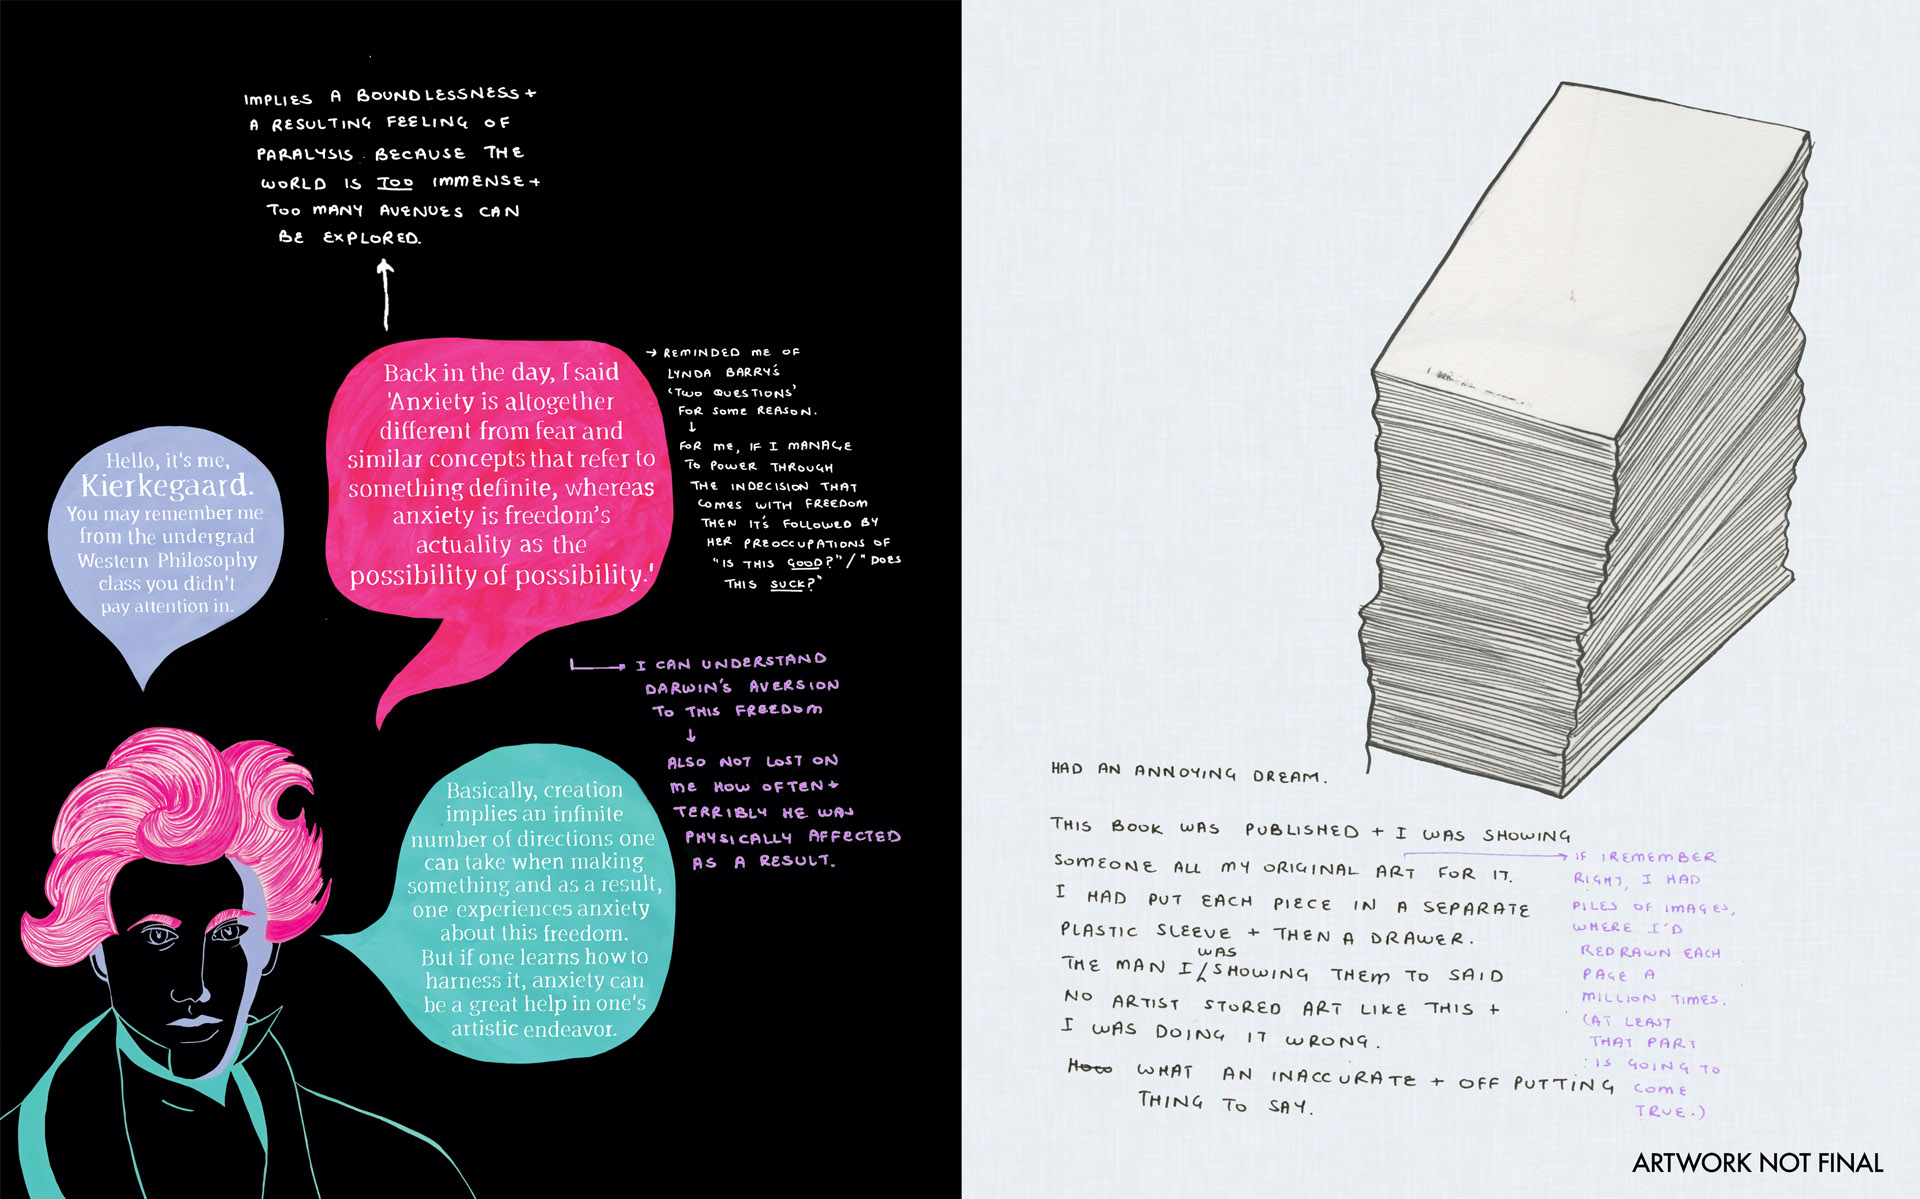 IMPLIES A BOUNDLESSNESS +
A RESULTING FEELING OF
PARALYSIS BECAUSE THE
WORLD IS TOO IMMENSE +
TOO MANY AVENUES CAN
BE EXPLORED.
Hello, it's me,
Kierkegaard.
You may remember me
from the undergrad
Western Philosophy
class you didn't
pay attention in.
Back in the day, I said
'Anxiety is altogether
different from fear and
similar concepts that refer to
something definite, whereas
anxiety is freedom's
actuality as the
possibility of possibility.'
→ REMINDED ME OF
LYNDA BARRY'S
'TWO QUESTIONS'
FOR SOME REASON.
↓
FOR ME, IF I MANAGE
TO POWER THROUGH
THE INDECISION THAT
COMES WITH FREEDOM
THEN IT'S FOLLOWED BY
HER PREOCCUPATIONS OF
"IS THIS GOOD?"/"DOES
THIS SUCK?"
I CAN UNDERSTAND
DARWIN'S AVERSION
TO THIS FREEDOM
↓
ALSO NOT LOST ON
ME HOW OFTEN +
TERRIBLY HE WAS
PHYSICALLY AFFECTED
AS A RESULT.
Basically, creation
implies an infinite
number of directions one
can take when making
something and as a result,
one experiences anxiety
about this freedom.
But if one learns how to
harness it, anxiety can
be a great help in one's
artistic endeavor.
HAD AN ANNOYING DREAM.
THIS BOOK WAS PUBLISHED + I WAS SHOWING
SOMEONE ALL MY ORIGINAL ART FOR IT.
I HAD PUT EACH PIECE IN A SEPARATE
PLASTIC SLEEVE + THEN A DRAWER.
THE MAN I WAS SHOWING THEM TO SAID
NO ARTIST STORED ART LIKE THIS +
I WAS DOING IT WRONG.
HOW WHAT AN INACCURATE + OFF PUTTING
THING TO SAY.
IF I REMEMBER
RIGHT, I HAD
PILES OF IMAGES,
WHERE I'D
REDRAWN EACH
PAGE A
MILLION TIMES.
(AT LEAST
THAT PART
IS GOING TO
COME
TRUE.)
ARTWORK NOT FINAL